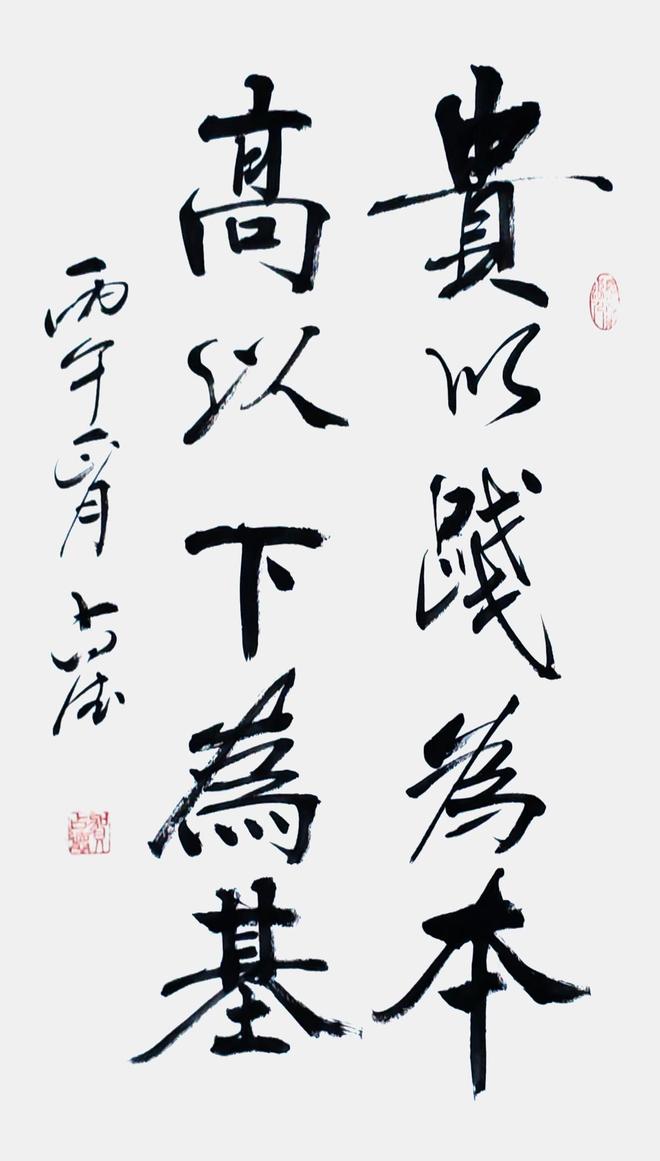 貴以賤為本
高以下為基
丙午正月